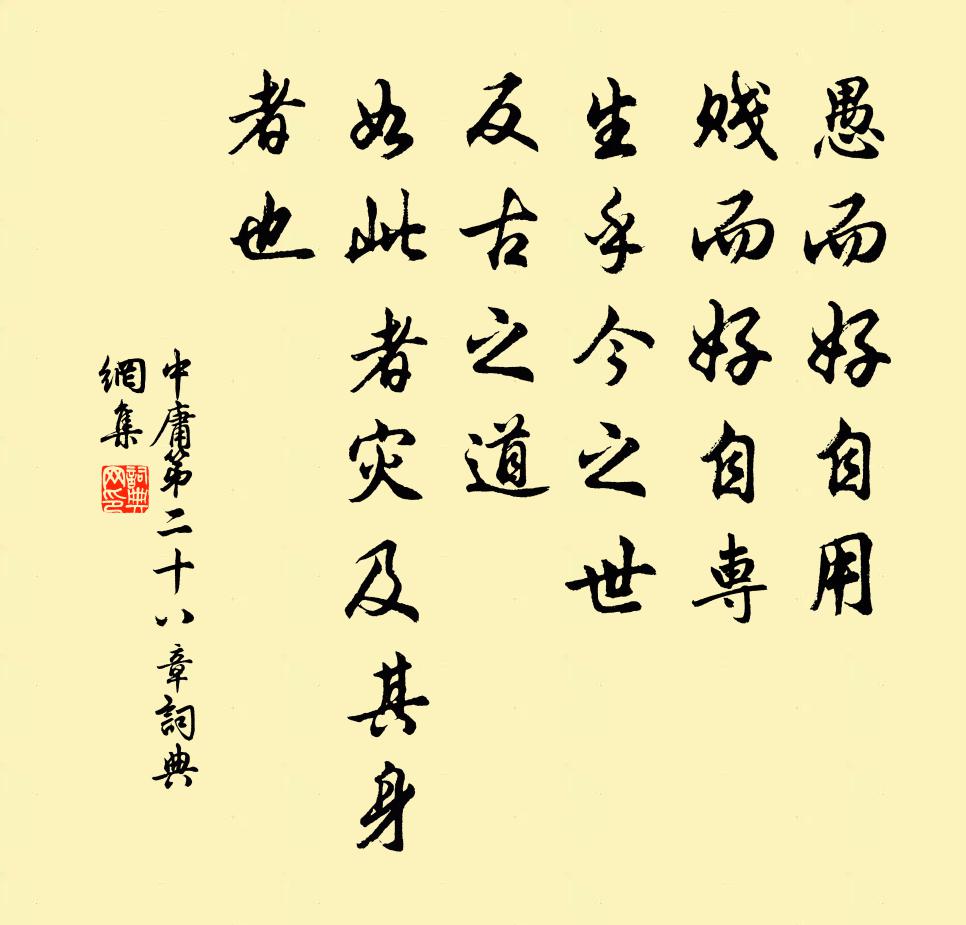 愚而好自用
賤而好自專
生乎今之世
反古之道
如此者灾及其身
者也
中庸第二十八章詞典
網集
詞典
网印